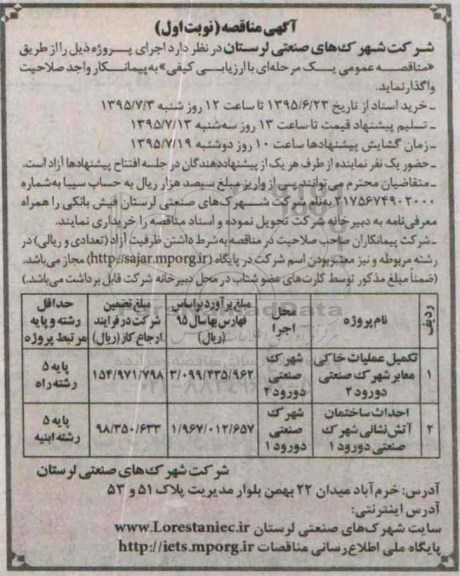 آگهی مناقصه (نوبت اول)
شرکت شهرک‌های صنعتی لرستان در نظر دارد اجرای پروژه ذیل را از طریق
«مناقصه عمومی یک مرحله‌ای با ارزیابی کیفی» به پیمانکار واجد صلاحیت
واگذار نماید.
ـ خرید اسناد از تاریخ ۱۳۹۵/۶/۲۳ تا ساعت ۱۲ روز شنبه ۱۳۹۵/۷/۳
ـ تسلیم پیشنهاد قیمت تا ساعت ۱۳ روز سه‌شنبه ۱۳۹۵/۷/۱۳
ـ زمان گشایش پیشنهادها ساعت ۱۰ روز دوشنبه ۱۳۹۵/۷/۱۹
ـ حضور یک نفر نماینده از طرف هر یک از پیشنهاددهندگان در جلسه افتتاح پیشنهادها آزاد است.
ـ متقاضیان محترم می‌توانند پس از واریز مبلغ سیصد هزار ریال به حساب سیبا به‌شماره
۲۱۷۵۶۷۴۹۰۲۰۰۰ به‌نام شرکت شهرک‌های صنعتی لرستان فیش بانکی را همراه
معرفی‌نامه به دبیرخانه شرکت تحویل نموده و اسناد مناقصه را خریداری نمایند.
ـ شرکت پیمانکاران صاحب صلاحیت در مناقصه به‌شرط داشتن ظرفیت آزاد (تعدادی و ریالی) در
رشته مربوطه و نیز معتبر بودن اسم شرکت در پایگاه (http://sajar.mporg.ir) مجاز می‌باشد.
(ضمناً مبلغ مذکور توسط کارت‌های عضو شتاب در محل دبیرخانه شرکت قابل برداشت می‌باشد.)
ردیف نام پروژه محل اجرا مبلغ برآورد براساس فهارس بها سال ۹۵ (ریال) مبلغ تضمین شرکت در فرایند ارجاع کار (ریال) حداقل رشته و پایه مرتبط پروژه
۱ تکمیل عملیات خاکی معابر شهرک صنعتی دورود ۲ شهرک صنعتی دورود ۲ ۳/۰۹۹/۴۳۵/۹۶۲ ۱۵۴/۹۷۱/۷۹۸ پایه ۵ رشته راه
۲ احداث ساختمان آتش نشانی شهرک صنعتی دورود ۱ شهرک صنعتی دورود ۱ ۱/۹۶۷/۰۱۲/۶۵۷ ۹۸/۳۵۰/۶۳۳ پایه ۵ رشته ابنیه
شرکت شهرک‌های صنعتی لرستان
آدرس: خرم آباد میدان ۲۲ بهمن بلوار مدیریت پلاک ۵۱ و ۵۳
آدرس اینترنتی:
سایت شهرک‌های صنعتی لرستان www.Lorestaniec.ir
پایگاه ملی اطلاع رسانی مناقصات http://iets.mporg.ir